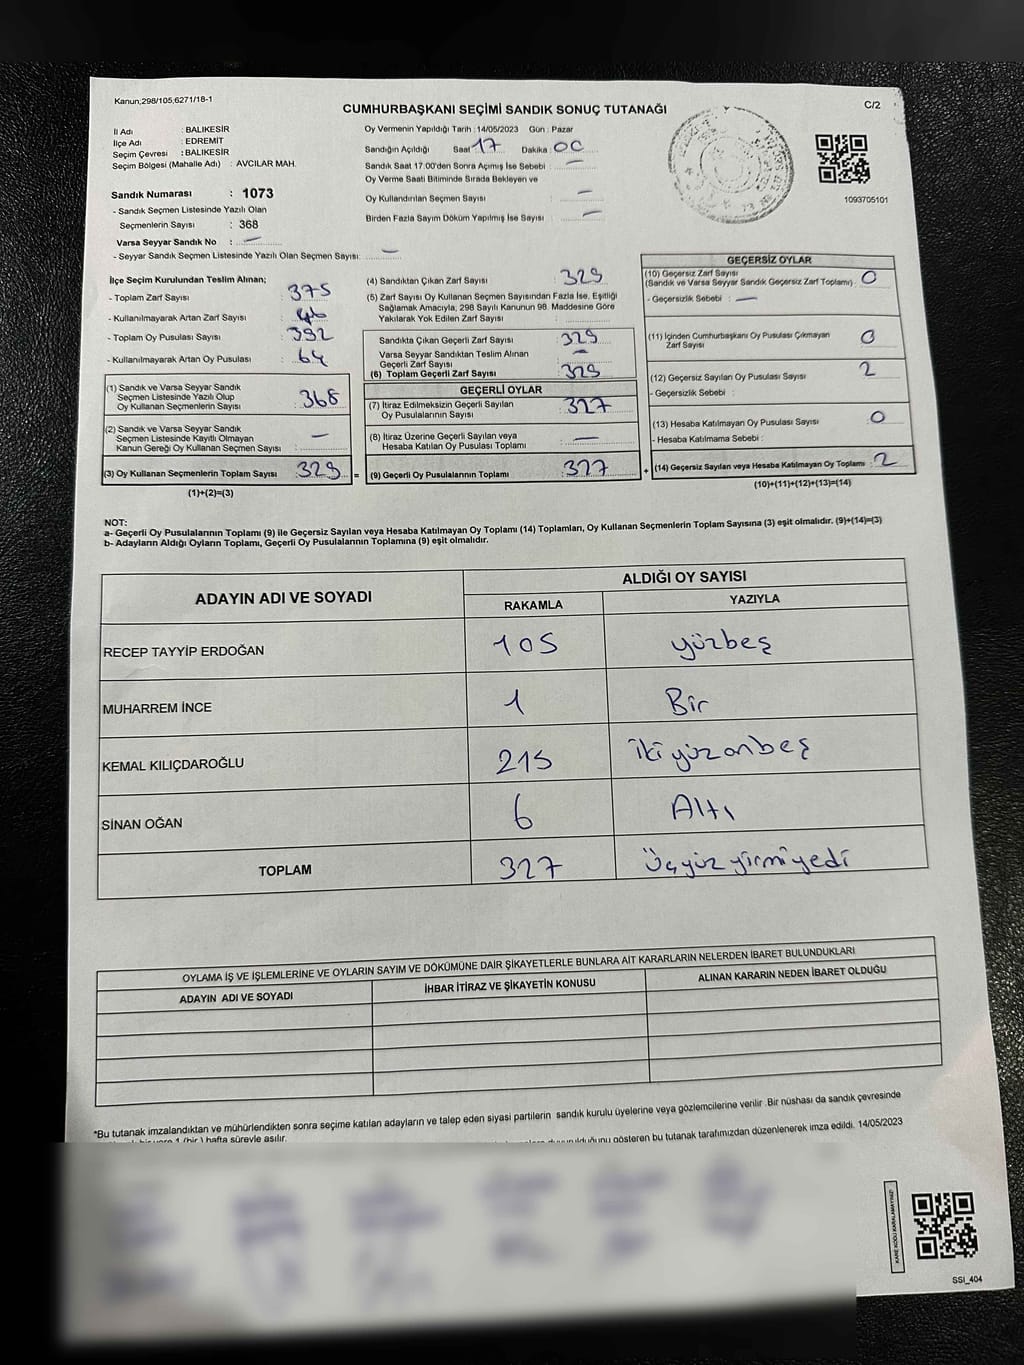 Kanun;298/105,6271/18-1
C/2
CUMHURBAŞKANI SEÇİMİ SANDIK SONUÇ TUTANAĞI
İl Adı : BALIKESİR
İlçe Adı : EDREMİT
Seçim Çevresi : BALIKESİR
Seçim Bölgesi (Mahalle Adı) : AVCILAR MAH.
Sandık Numarası : 1073
- Sandık Seçmen Listesinde Yazılı Olan
Seçmenlerin Sayısı : 368
Varsa Seyyar Sandık No : —
- Seyyar Sandık Seçmen Listesinde Yazılı Olan Seçmen Sayısı: —
Oy Vermenin Yapıldığı Tarih : 14/05/2023 Gün : Pazar
Sandığın Açıldığı Saat 17 Dakika : 00
Sandık Saat 17:00'den Sonra Açımış İse Sebebi : —
Oy Verme Saati Bitiminde Sırada Bekleyen ve
Oy Kullandırılan Seçmen Sayısı : —
Birden Fazla Sayım Döküm Yapılmış İse Sayısı : —
1093705101
İlçe Seçim Kurulundan Teslim Alınan;
- Toplam Zarf Sayısı : 375
- Kullanılmayarak Artan Zarf Sayısı : 46
- Toplam Oy Pusulası Sayısı : 392
- Kullanılmayarak Artan Oy Pusulası : 64
(1) Sandık ve Varsa Seyyar Sandık
Seçmen Listesinde Yazılı Olup
Oy Kullanan Seçmenlerin Sayısı : 368
(2) Sandık ve Varsa Seyyar Sandık
Seçmen Listesinde Kayıtlı Olmayan
Kanun Gereği Oy Kullanan Seçmen Sayısı : —
(3) Oy Kullanan Seçmenlerin Toplam Sayısı : 329
(1)+(2)=(3)
=
(4) Sandıktan Çıkan Zarf Sayısı : 329
(5) Zarf Sayısı Oy Kullanan Seçmen Sayısından Fazla İse, Eşitliği
Sağlamak Amacıyla, 298 Sayılı Kanunun 98. Maddesine Göre
Yakılarak Yok Edilen Zarf Sayısı :
Sandıkta Çıkan Geçerli Zarf Sayısı : 329
Varsa Seyyar Sandıktan Teslim Alınan
Geçerli Zarf Sayısı : —
(6) Toplam Geçerli Zarf Sayısı : 329
GEÇERLİ OYLAR
(7) İtiraz Edilmeksizin Geçerli Sayılan
Oy Pusulalarının Sayısı : 327
(8) İtiraz Üzerine Geçerli Sayılan veya
Hesaba Katılan Oy Pusulası Toplamı : —
(9) Geçerli Oy Pusulalarının Toplamı : 327
+
GEÇERSİZ OYLAR
(10) Geçersiz Zarf Sayısı
(Sandık ve Varsa Seyyar Sandık Geçersiz Zarf Toplamı) : 0
- Geçersizlik Sebebi : —
(11) İçinden Cumhurbaşkanı Oy Pusulası Çıkmayan
Zarf Sayısı : 0
(12) Geçersiz Sayılan Oy Pusulası Sayısı : 2
- Geçersizlik Sebebi :
(13) Hesaba Katılmayan Oy Pusulası Sayısı : 0
- Hesaba Katılmama Sebebi :
(14) Geçersiz Sayılan veya Hesaba Katılmayan Oy Toplamı : 2
(10)+(11)+(12)+(13)=(14)
NOT:
a- Geçerli Oy Pusulalarının Toplamı (9) ile Geçersiz Sayılan veya Hesaba Katılmayan Oy Toplamı (14) Toplamları, Oy Kullanan Seçmenlerin Toplam Sayısına (3) eşit olmalıdır. (9)+(14)=(3)
b- Adayların Aldığı Oyların Toplamı, Geçerli Oy Pusulalarının Toplamına (9) eşit olmalıdır.
ADAYIN ADI VE SOYADI
ALDIĞI OY SAYISI
RAKAMLA YAZIYLA
RECEP TAYYİP ERDOĞAN 105 yüzbeş
MUHARREM İNCE 1 Bir
KEMAL KILIÇDAROĞLU 215 ikiyüzonbeş
SİNAN OĞAN 6 Altı
TOPLAM 327 Üçyüzyirmiyedi
OYLAMA İŞ VE İŞLEMLERİNE VE OYLARIN SAYIM VE DÖKÜMÜNE DAİR ŞİKAYETLERLE BUNLARA AİT KARARLARIN NELERDEN İBARET BULUNDUKLARI
ADAYIN ADI VE SOYADI
İHBAR İTİRAZ VE ŞİKAYETİN KONUSU
ALINAN KARARIN NEDEN İBARET OLDUĞU
*Bu tutanak imzalandıktan ve mühürlendikten sonra seçime katılan adayların ve talep eden siyasi partilerin sandık kurulu üyelerine veya gözlemcilerine verilir .Bir nüshası da sandık çevresinde
1 (bir) hafta süreyle asılır.
gösteren bu tutanak tarafımızdan düzenlenerek imza edildi. 14/05/2023
KARE KODU KARALAMAYINIZ!
SSI_404